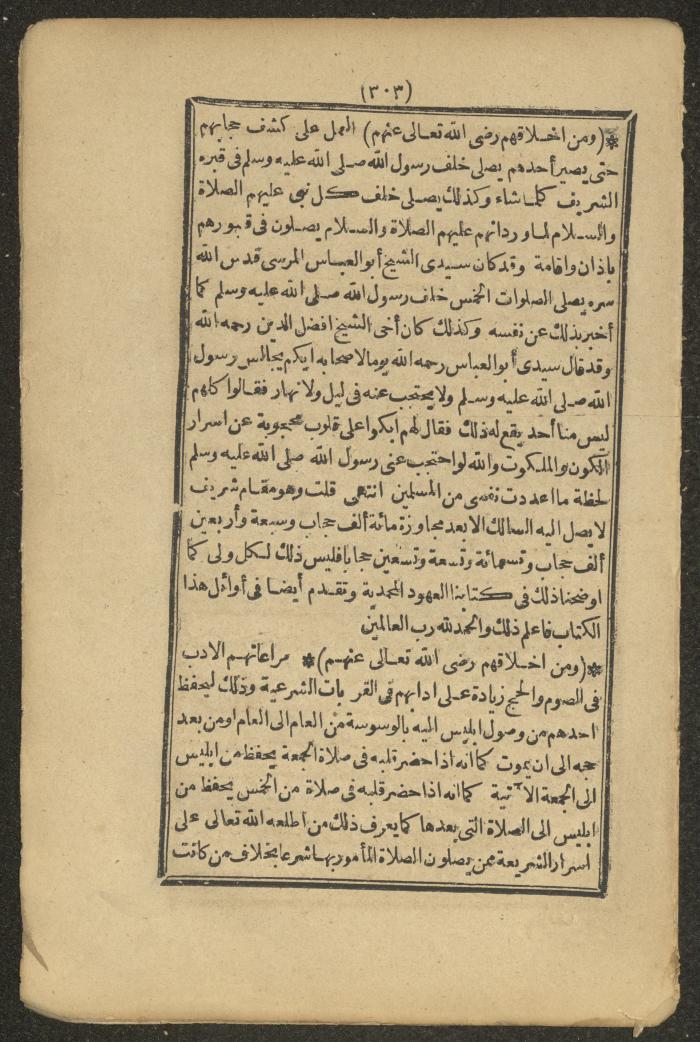 (٣٠٣)
*(ومن اخلاقهم رضى الله تعالى عنهم) العمل على كشف حجابهم
حتى يصير أحدهم يصلى خلف رسول الله صلى الله عليه وسلم فى قبره
الشريف كلما شاء وكذلك يصلى خلف كل نبى عليهم الصلاة
والسلام لما ورد انهم عليهم الصلاة والسلام يصلون فى قبورهم
باذان واقامة وقد كان سيدى الشيخ أبو العباس المرسى قدس الله
سره يصلى الصلوات الخمس خلف رسول الله صلى الله عليه وسلم كما
أخبر بذلك عن نفسه وكذلك كان أخى الشيخ افضل الدين رحمه الله
وقد قال سيدى أبو العباس رحمه الله يوما لاصحابه ايكم يجالس رسول
الله صلى الله عليه وسلم ولا يحتجب عنه فى ليل ولا نهار فقالوا كلهم
ليس منا أحد يقع له ذلك فقال لهم ابكوا على قلوب محجوبة عن اسرار
الكون والملكوت والله لو احتجب عنى رسول الله صلى الله عليه وسلم
لحظة ما اعددت نفسى من المسلمين انتهى قلت وهو مقام شريف
لا يصل اليه السالك الا بعد مجاوزة مائة ألف حجاب وسبعة وأربعين
ألف حجاب وتسعمائة وتسعة وتسعين حجابا فليس ذلك لكل ولى كما
اوضحنا ذلك فى كتابنا العهود المحمدية وتقدم أيضا فى أوائل هذا
الكتاب فاعلم ذلك والحمد لله رب العالمين
*(ومن اخلاقهم رضى الله تعالى عنهم)* مراعاتهم الادب
فى الصوم والحج زيادة على ادابهم فى القربات الشرعية وذلك ليحفظ
احدهم من وصول ابليس اليه بالوسوسة من العام الى العام او من بعد
حجه الى ان يموت كما انه اذا حضر قلبه فى صلاة الجمعة يحفظ من ابليس
الى الجمعة الآتية كما انه اذا حضر قلبه فى صلاة من الخمس يحفظ من
ابليس الى الصلاة التى بعدها كما يعرف ذلك من اطلعه الله تعالى على
اسرار الشريعة ممن يصلون الصلاة المأمور بها شرعا بخلاف من كانت